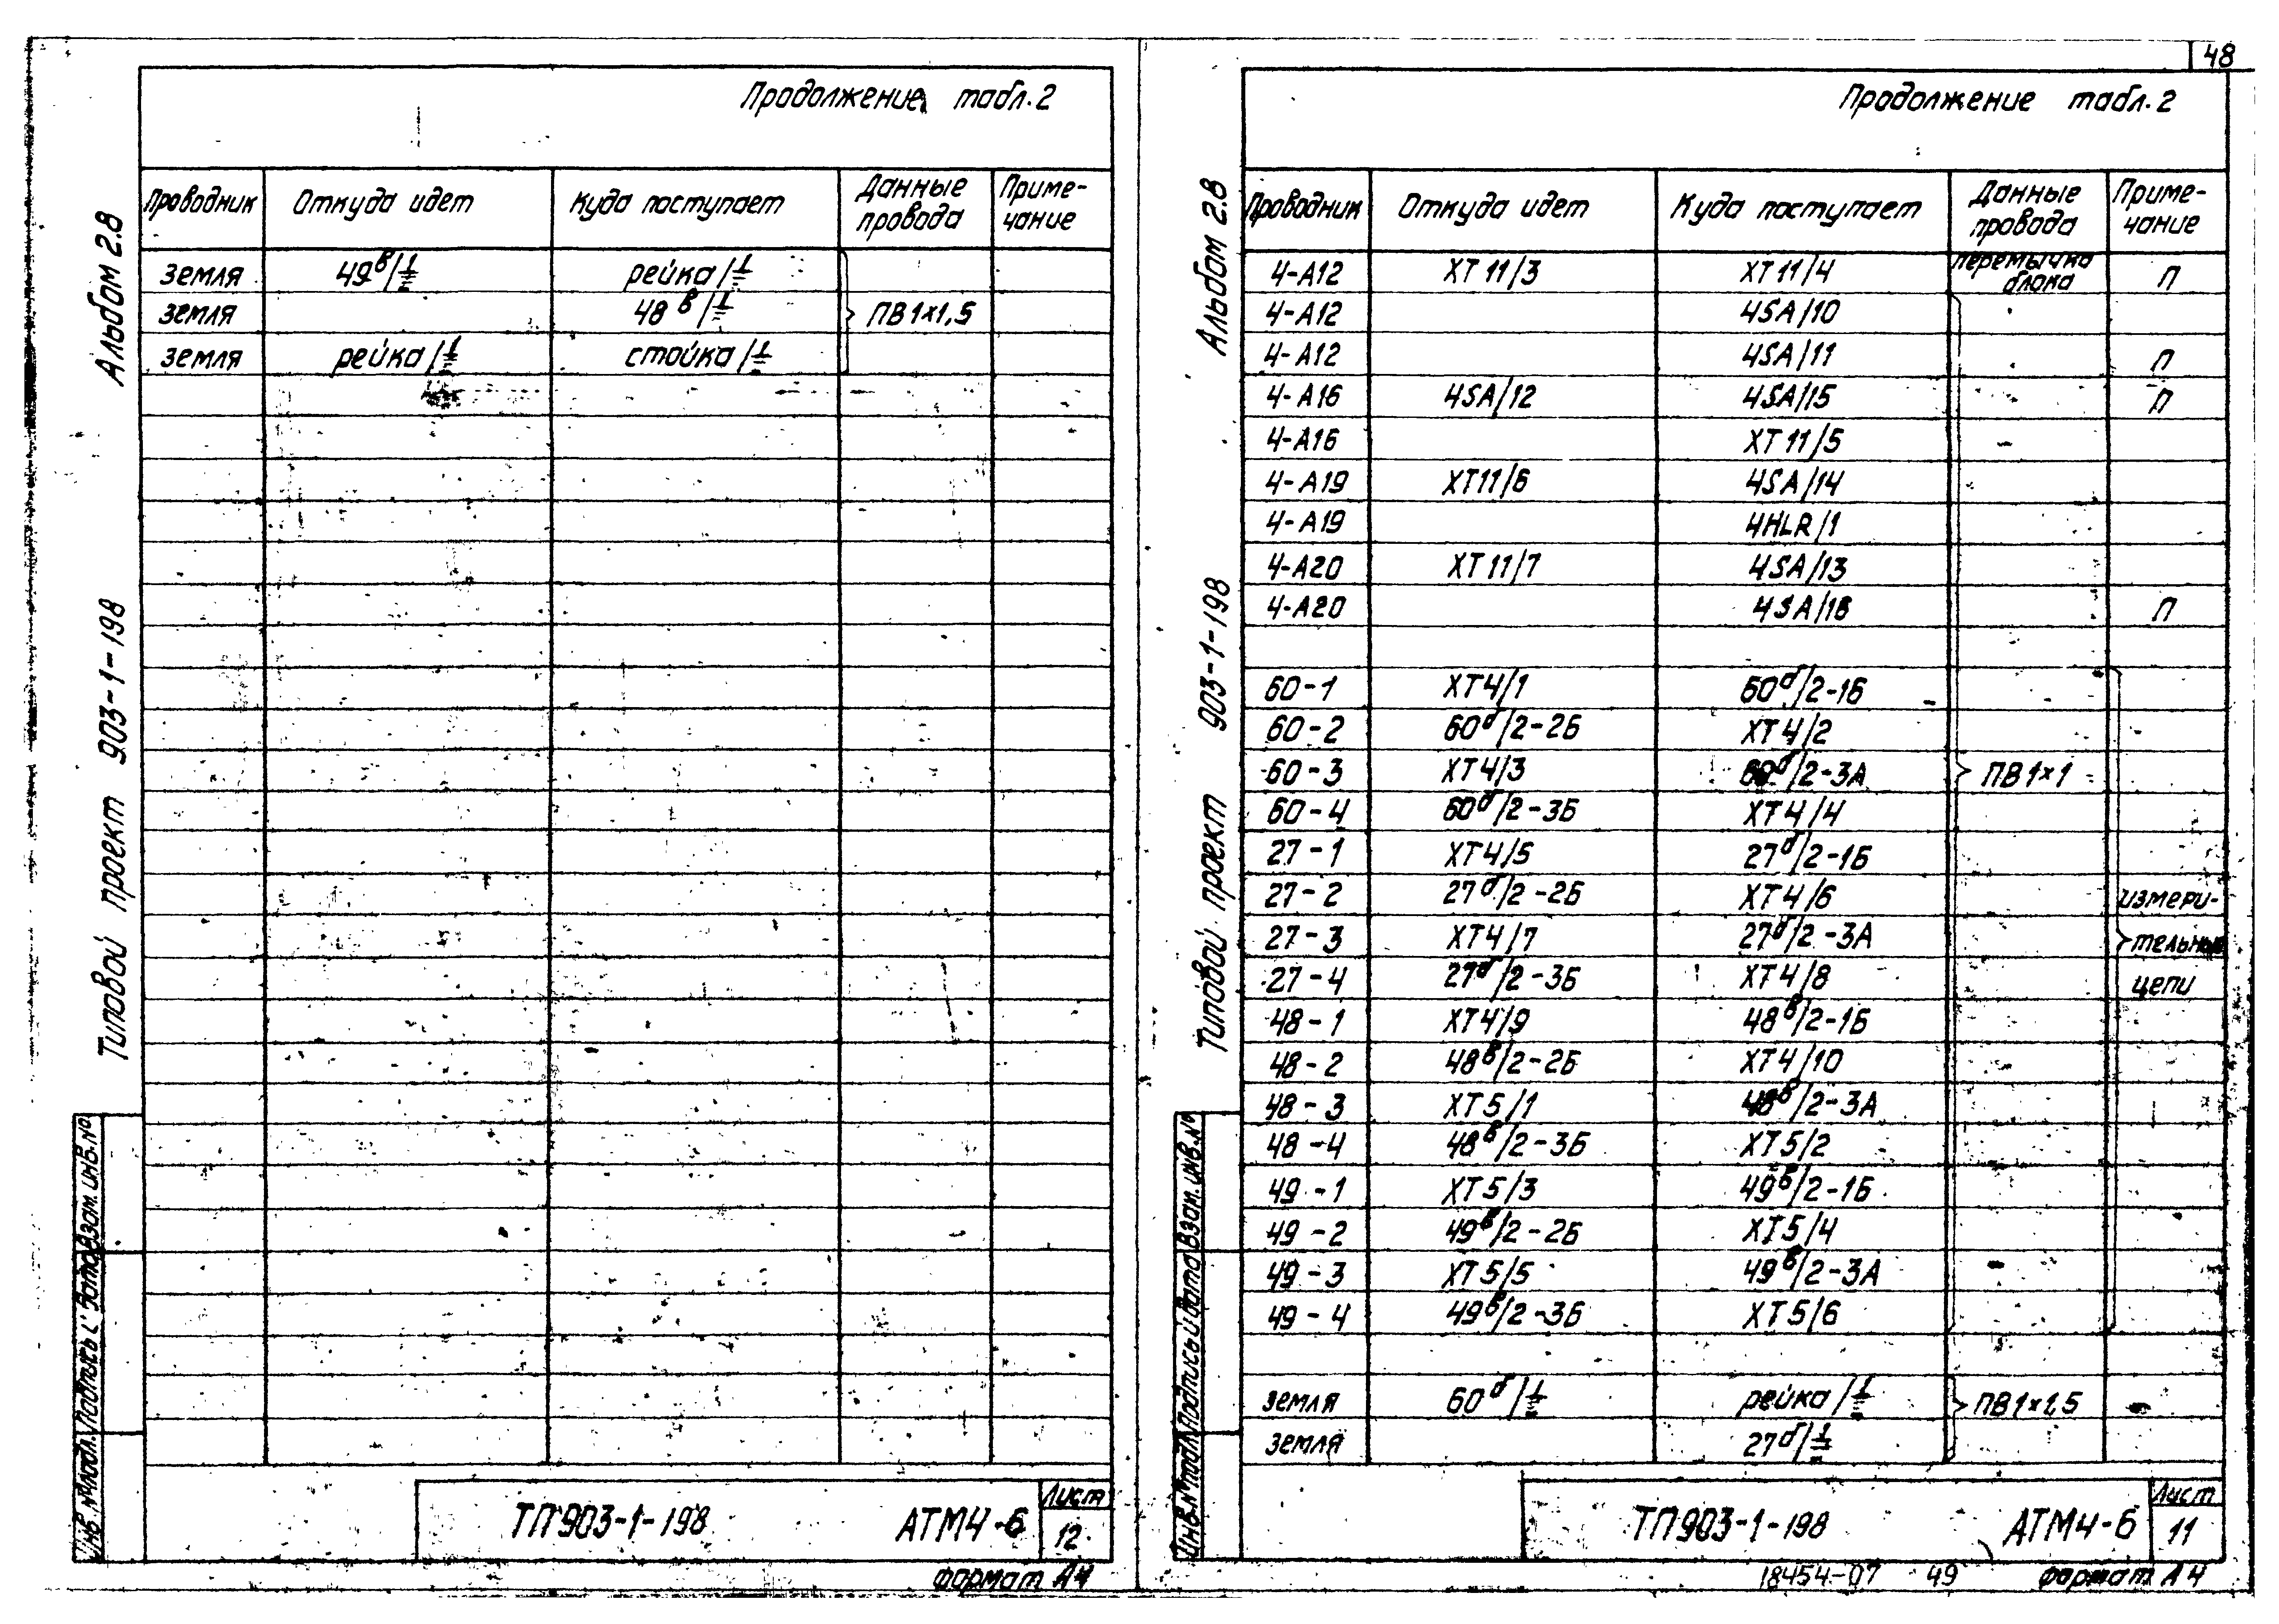 48
Продолжение табл. 2
Альбом 2.8
Типовой проект 903-1-198
Проводник Откуда идет Куда поступает Данные провода Приме-чание
земля 49в/⏚ рейка/⏚
земля 48в/⏚ ПВ1×1,5
земля рейка/⏚ стойка/⏚
Инв.№подл. Подпись и дата Взам.инв.№
ТП903-1-198 АТМ4-6 Лист 12
Формат А4
Продолжение табл. 2
Альбом 2.8
Типовой проект 903-1-198
Проводник Откуда идет Куда поступает Данные провода Приме-чание
4-А12 ХТ11/3 ХТ11/4 перемычка блока П
4-А12 4SA/10
4-А12 4SA/11 П
4-А16 4SA/12 4SA/15 П
4-А16 ХТ11/5
4-А19 ХТ11/6 4SA/14
4-А19 4HLR/1
4-А20 ХТ11/7 4SA/13
4-А20 4SA/16 П
60-1 ХТ4/1 60б/2-1Б
60-2 60б/2-2Б ХТ4/2
60-3 ХТ4/3 60б/2-3А ПВ1×1
60-4 60б/2-3Б ХТ4/4
27-1 ХТ4/5 27б/2-1Б
27-2 27б/2-2Б ХТ4/6 измери-
27-3 ХТ4/7 27б/2-3А тельные
27-4 27б/2-3Б ХТ4/8 цепи
48-1 ХТ4/9 48в/2-1Б
48-2 48в/2-2Б ХТ4/10
48-3 ХТ5/1 48в/2-3А
48-4 48в/2-3Б ХТ5/2
49-1 ХТ5/3 49в/2-1Б
49-2 49в/2-2Б ХТ5/4
49-3 ХТ5/5 49в/2-3А
49-4 49в/2-3Б ХТ5/6
земля 60б/⏚ рейка/⏚ ПВ1×1,5
земля 27б/⏚
Инв.№подл. Подпись и дата Взам.инв.№
ТП903-1-198 АТМ4-6 Лист 11
18454-07 49 Формат А4